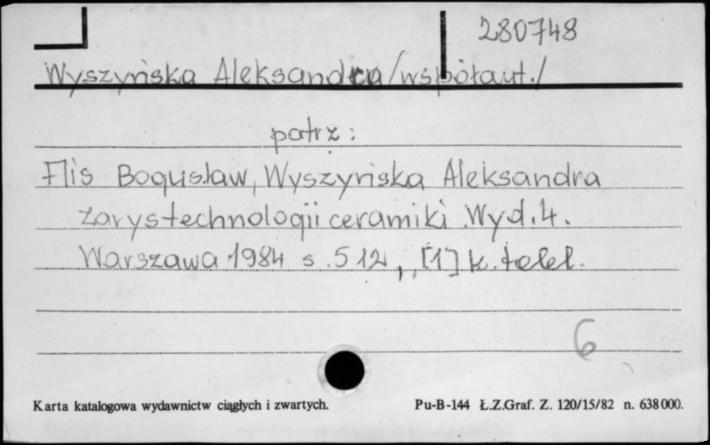 280748
Wyszyńska Aleksandra /współaut./
patrz:
Flis Bogusław, Wyszyńska Aleksandra
Zarys technologii ceramiki. Wyd. 4.
Warszawa 1984 s. 512, [1] k. tabl.
6
Karta katalogowa wydawnictw ciągłych i zwartych. Pu-B-144 Ł.Z.Graf. Z. 120/15/82 n. 638000.